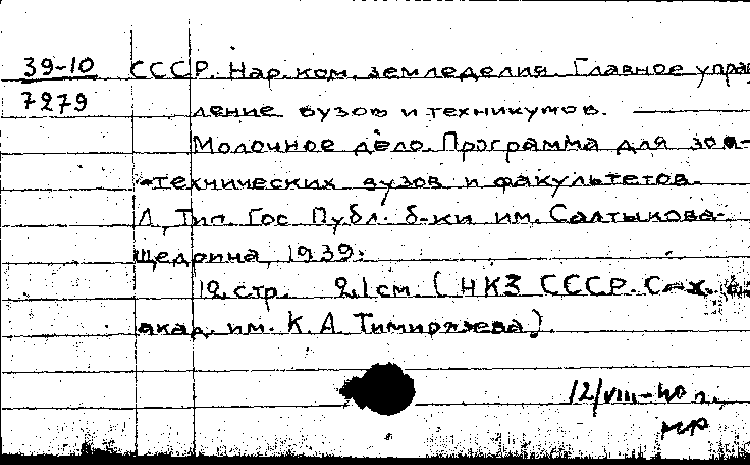 39-10 СССР. Нар. ком. земледелия. Главное управ
7279 ление вузов и техникумов.
Молочное дело. Программа для зоо-
-технических вузов и факультетов.
Л, Тип. Гос. Публ. б-ки им. Салтыкова-
Щедрина, 1939.
12 стр. 21 см. (НКЗ СССР. С-х.
акад. им. К. А. Тимирязева).
12/VIII-40 г.